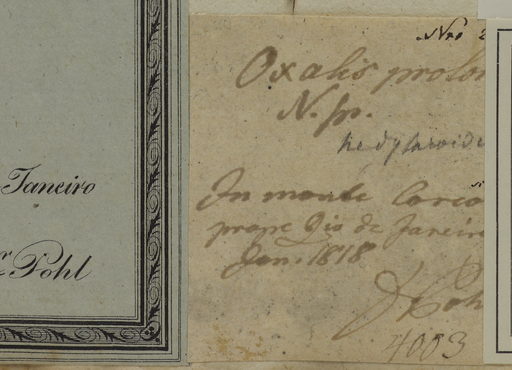 Janeiro
Pohl
Nro 2
Oxalis prolon
N. sp.
hedysaroide
In monte Corco
prope Rio de Janeiro
Jan. 1818
D Poh
4003